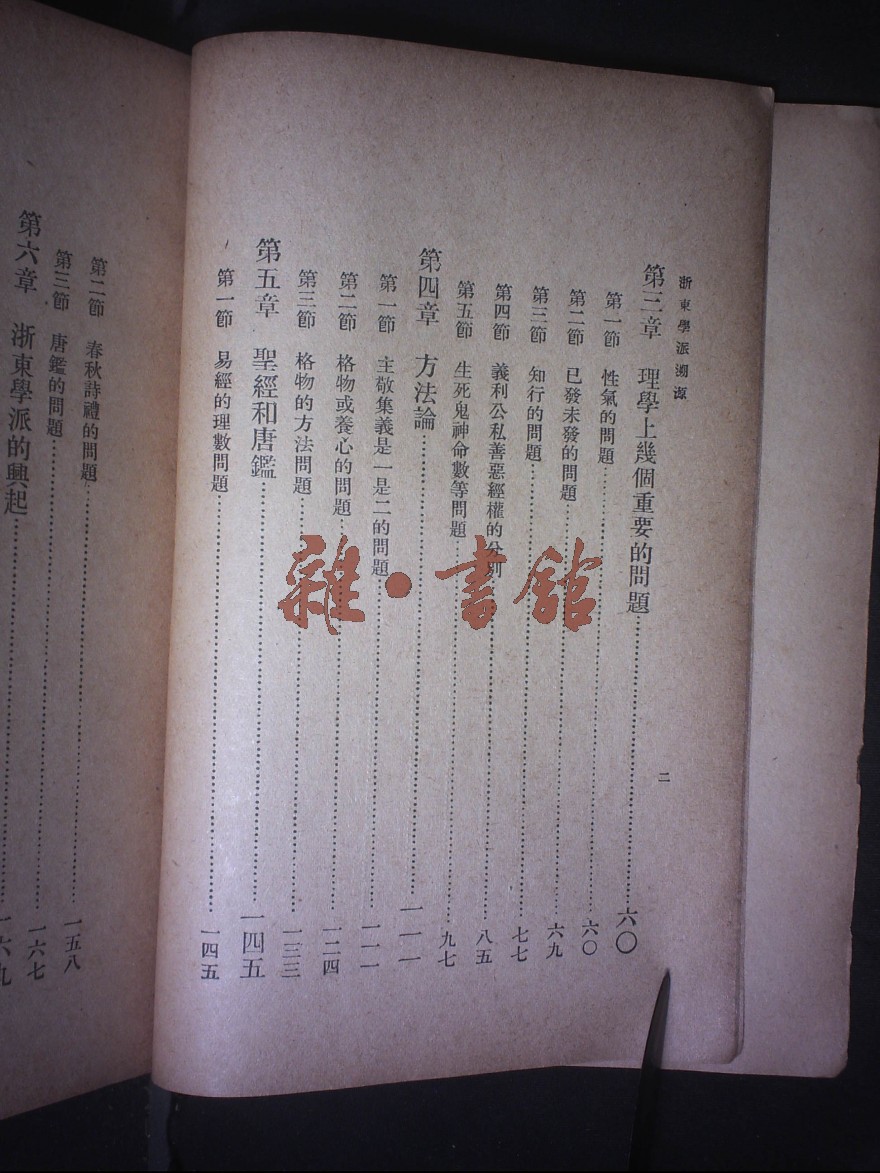 浙東學派溯源
第三章　理學上幾個重要的問題……六〇
第一節　性氣的問題……六〇
第二節　已發未發的問題……六九
第三節　知行的問題……七七
第四節　義利公私善惡經權的分別……八五
第五節　生死鬼神命數等問題……九七
第四章　方法論……一一一
第一節　主敬集義是一是二的問題……一一一
第二節　格物或養心的問題……一二四
第三節　格物的方法問題……一三三
第五章　聖經和唐鑑……一四五
第一節　易經的理數問題……一四五
二
第二節　春秋詩禮的問題……一五八
第三節　唐鑑的問題……一六七
第六章　浙東學派的興起……一六九
雜·書館